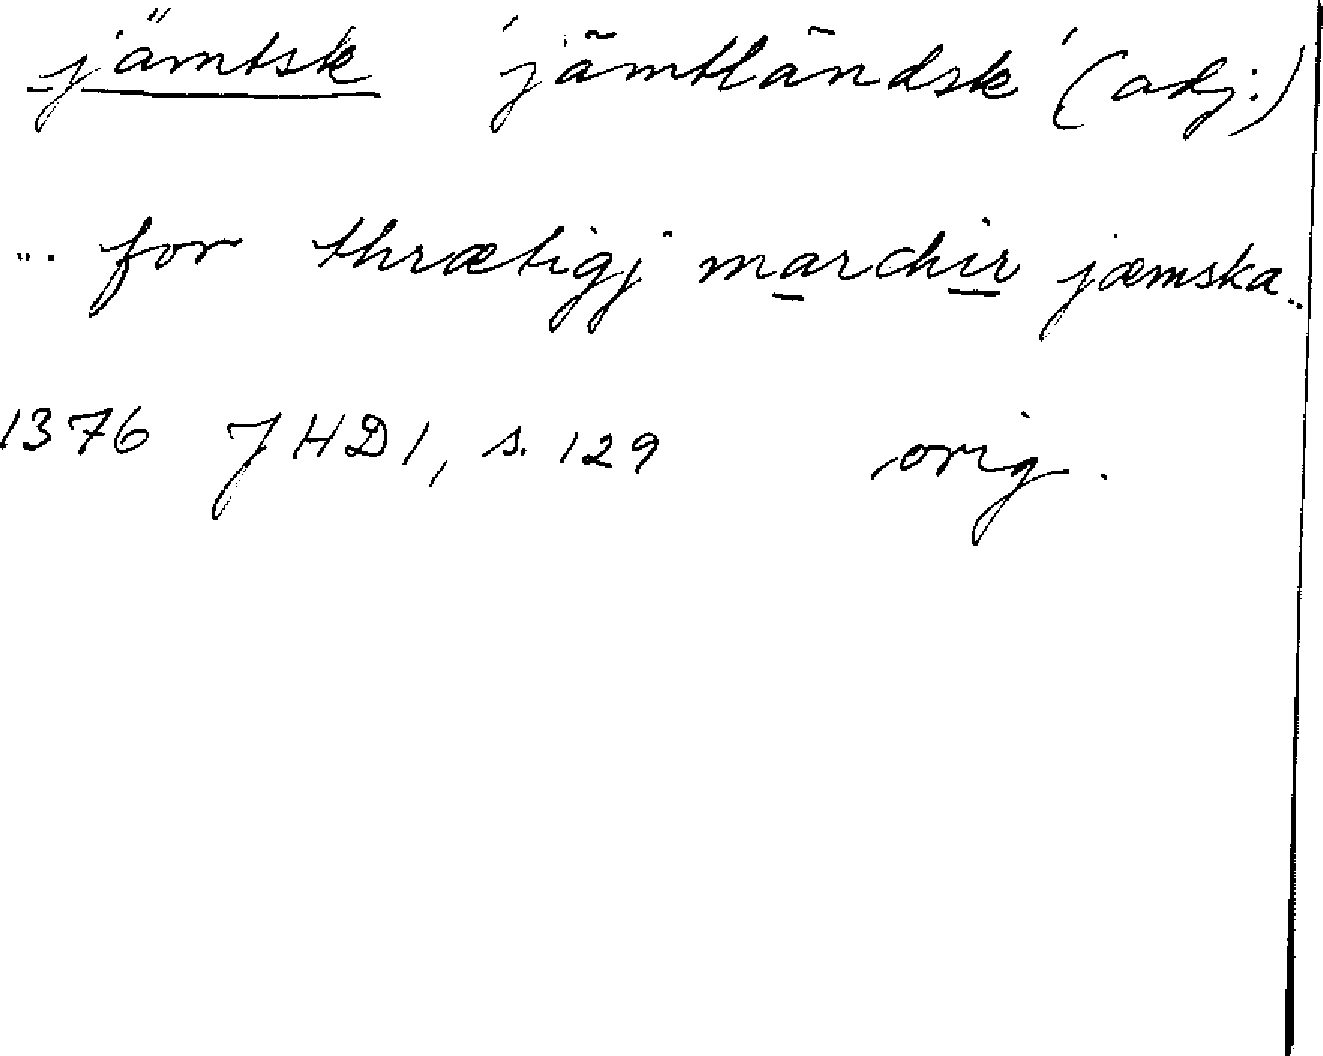 jämtsk 'jämtländsk' (adj.)
... for thrætigj marchir jæmska..
1376 JHD 1, s. 129 orig.